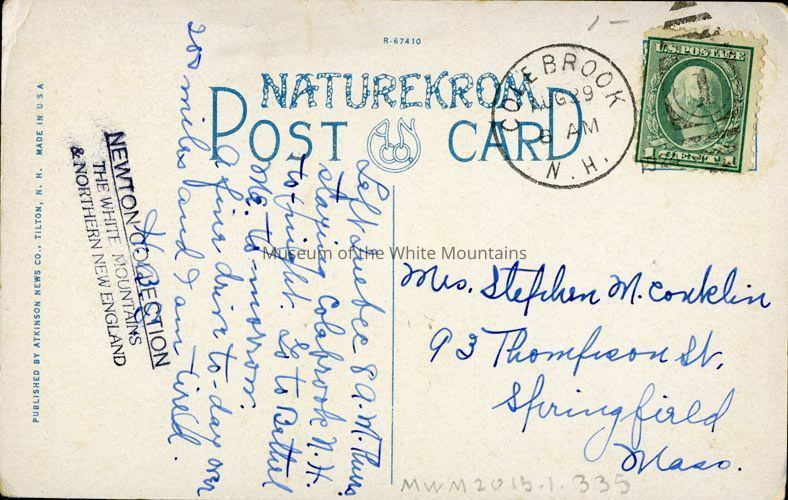 R-67410
NATUREKROM
POST CARD
A N CO.
COLEBROOK
AUG 29
6 AM
N. H.
U.S. POSTAGE
1 CENT 1
Left Quebec 8 A.M. Thurs.
staying Colabrook N.H.
to-night. Go to Bethel
Me. to-morrow.
A fine drive to-day over
200 miles and I am tired.
Mrs. Stephen M. Conklin
93 Thompson St.
Springfield
Mass.
NEWTON COLLECTION
THE WHITE MOUNTAINS
& NORTHERN NEW ENGLAND
PUBLISHED BY ATKINSON NEWS CO., TILTON, N. H. MADE IN U S A
Museum of the White Mountains
MWM2015.1.335